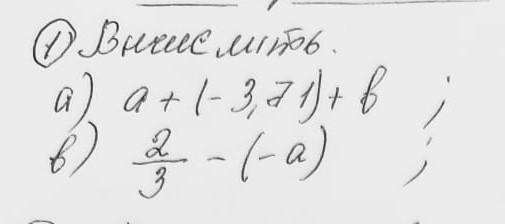 ① Вычислить.
а) a + (-3,71) + b ;
в) 2/3 - (-a) ;